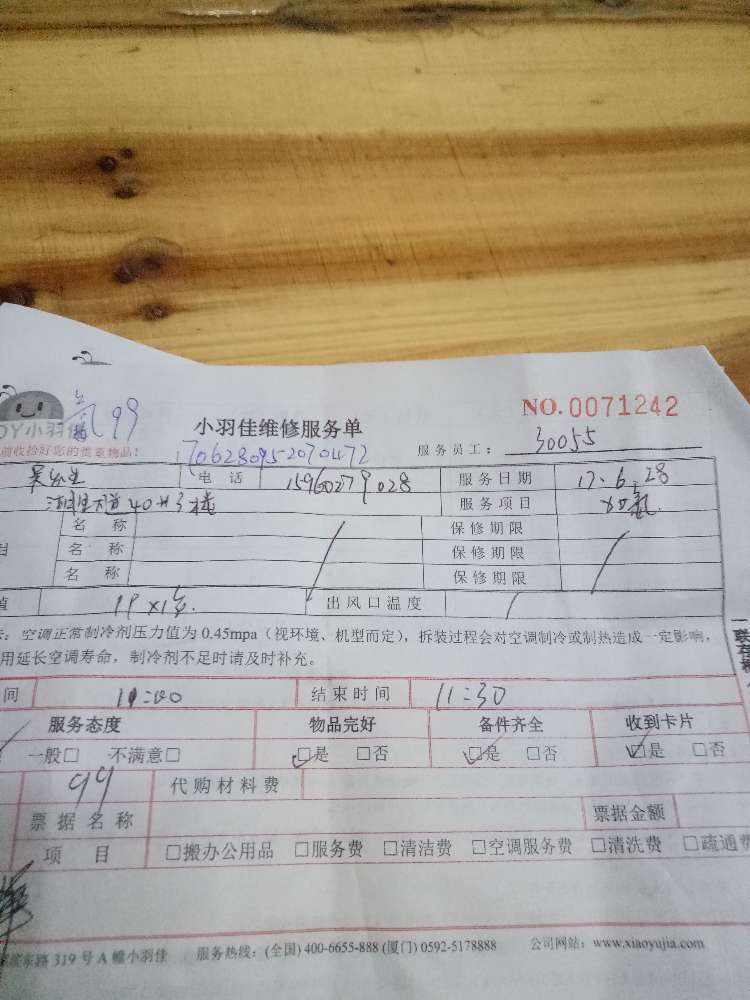 NO.0071242
99
OY小羽佳
小羽佳维修服务单
前收拾好您的贵重物品！
1706280952070472
服务员工： 30055
电 话 15960279028 服务日期 17.6.28
40#3楼 服务项目
名 称 保修期限
名 称 保修期限
名 称 保修期限
值 出风口温度
：空调正常制冷剂压力值为 0.45mpa（视环境、机型而定），拆装过程会对空调制冷或制热造成一定影响，
用延长空调寿命，制冷剂不足时请及时补充。
间 11:00 结束时间 11:30
服务态度 物品完好 备件齐全 收到卡片
一般□ 不满意□ □是 □否 □是 □否 □是 □否
99 代购材料费
票据名称 票据金额
项 目 □搬办公用品 □服务费 □清洁费 □空调服务费 □清洗费 □疏通费
东路 319 号 A 幢小羽佳 服务热线：(全国) 400-6655-888 (厦门) 0592-5178888 公司网站：www.xiaoyujia.com